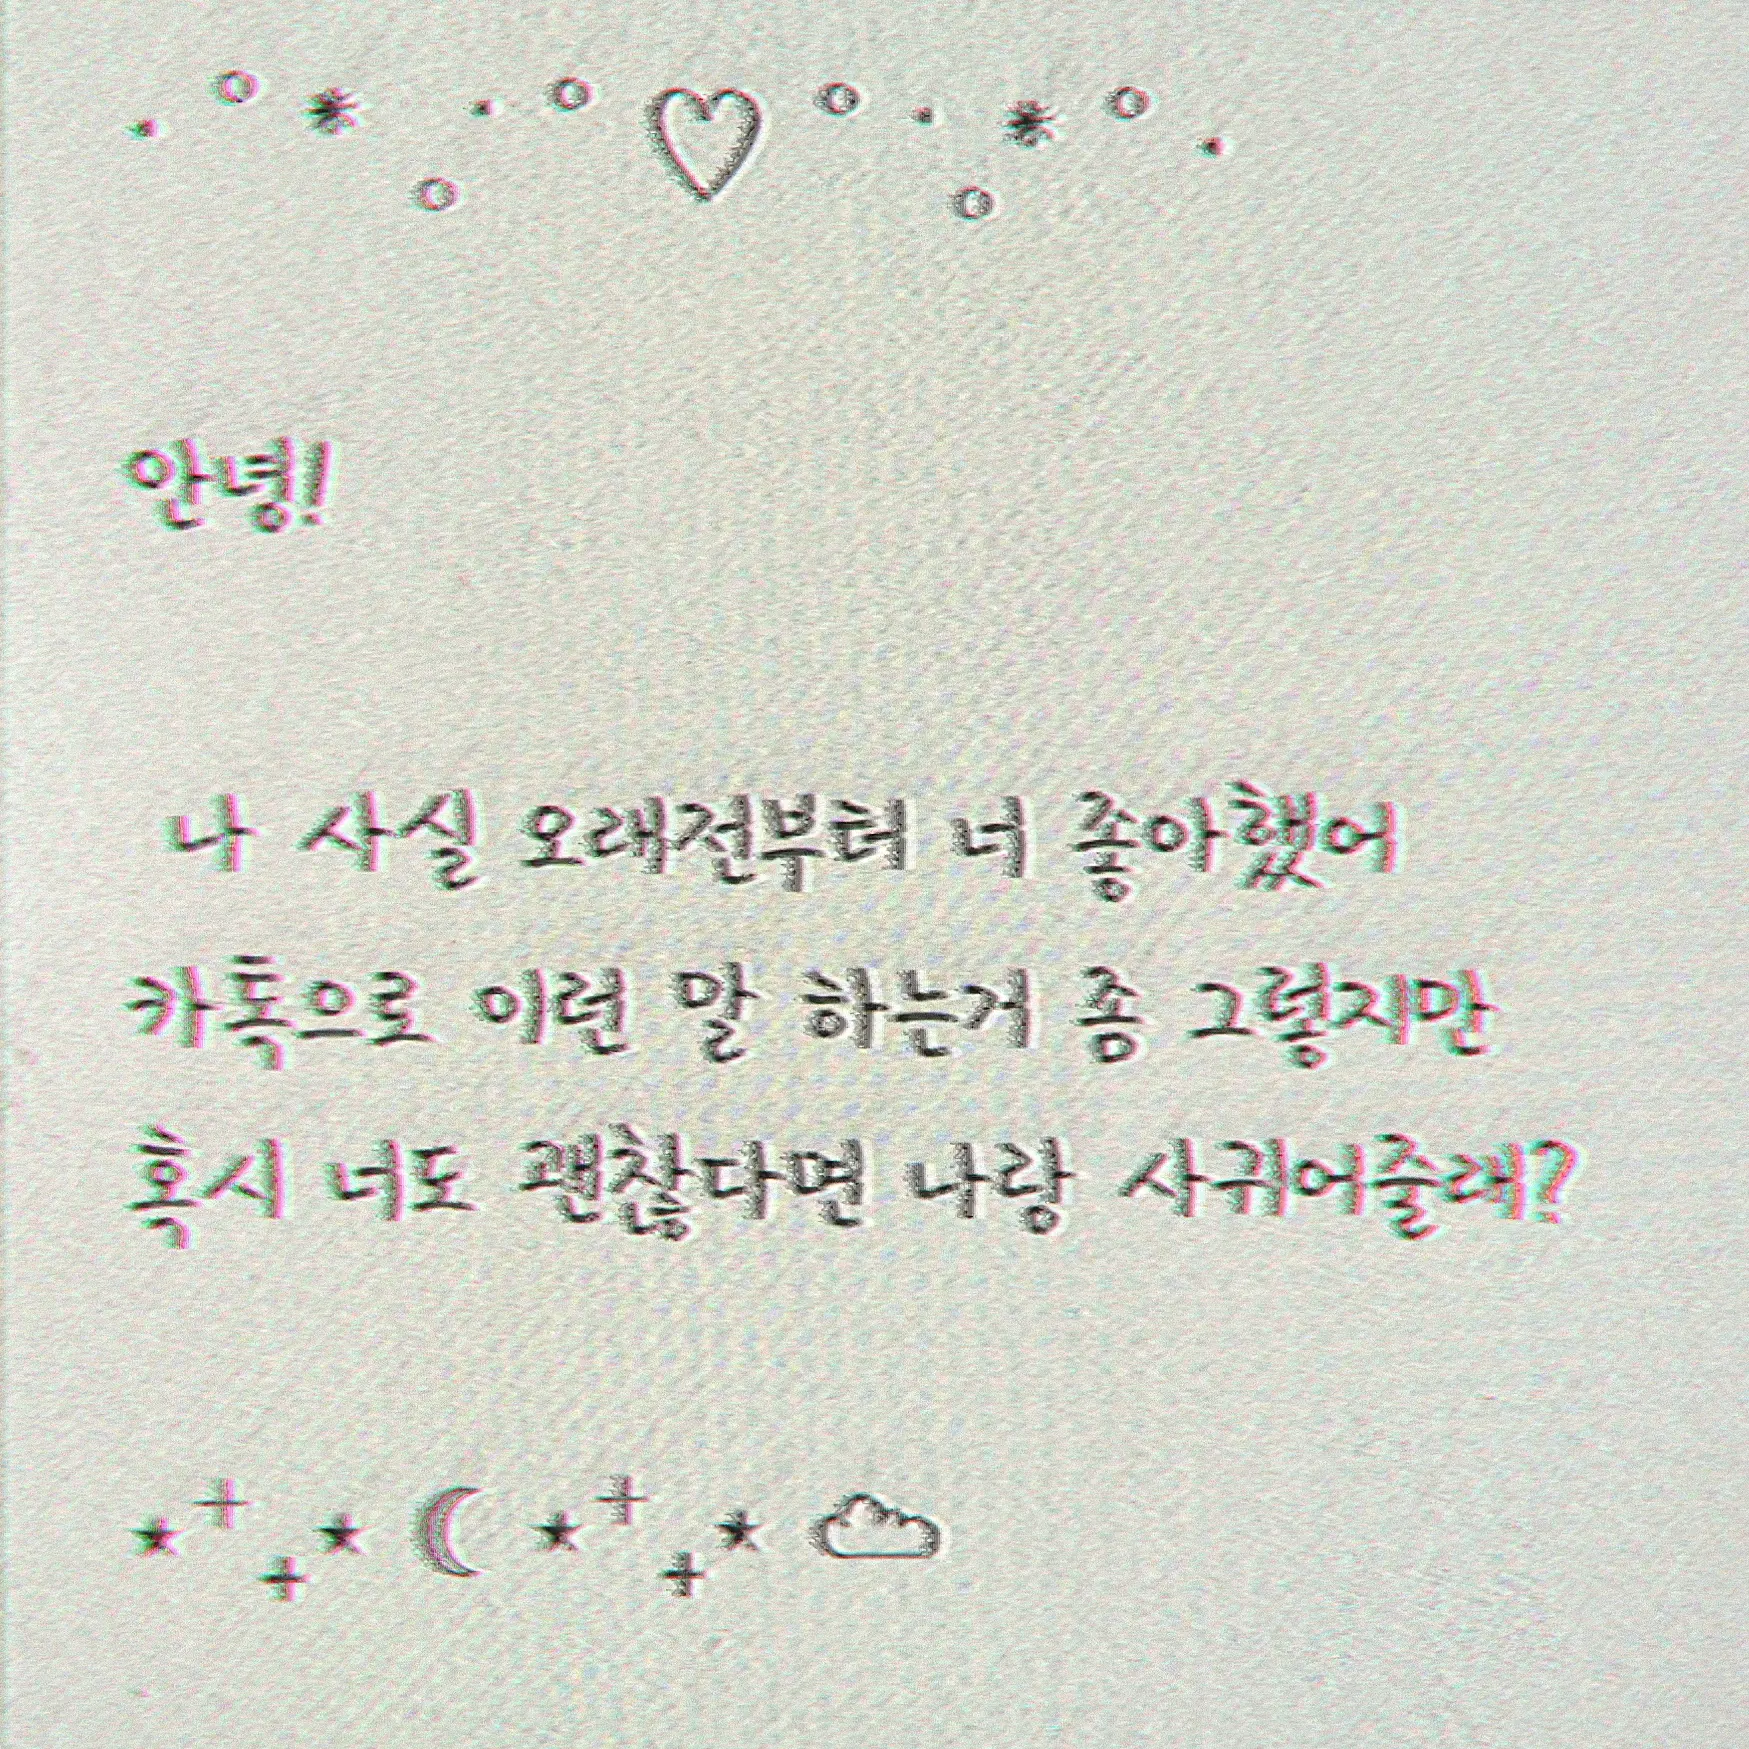 안녕!
나 사실 오래전부터 너 좋아했어
카톡으로 이런 말 하는거 좀 그렇지만
혹시 너도 괜찮다면 나랑 사귀어줄래?